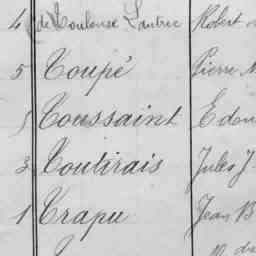 4 de Toulouse Lautrec Robert
5 Toupé Pierre
5 Toussaint Edou
3 Toutirais Jules J
1 Trapu Jean B